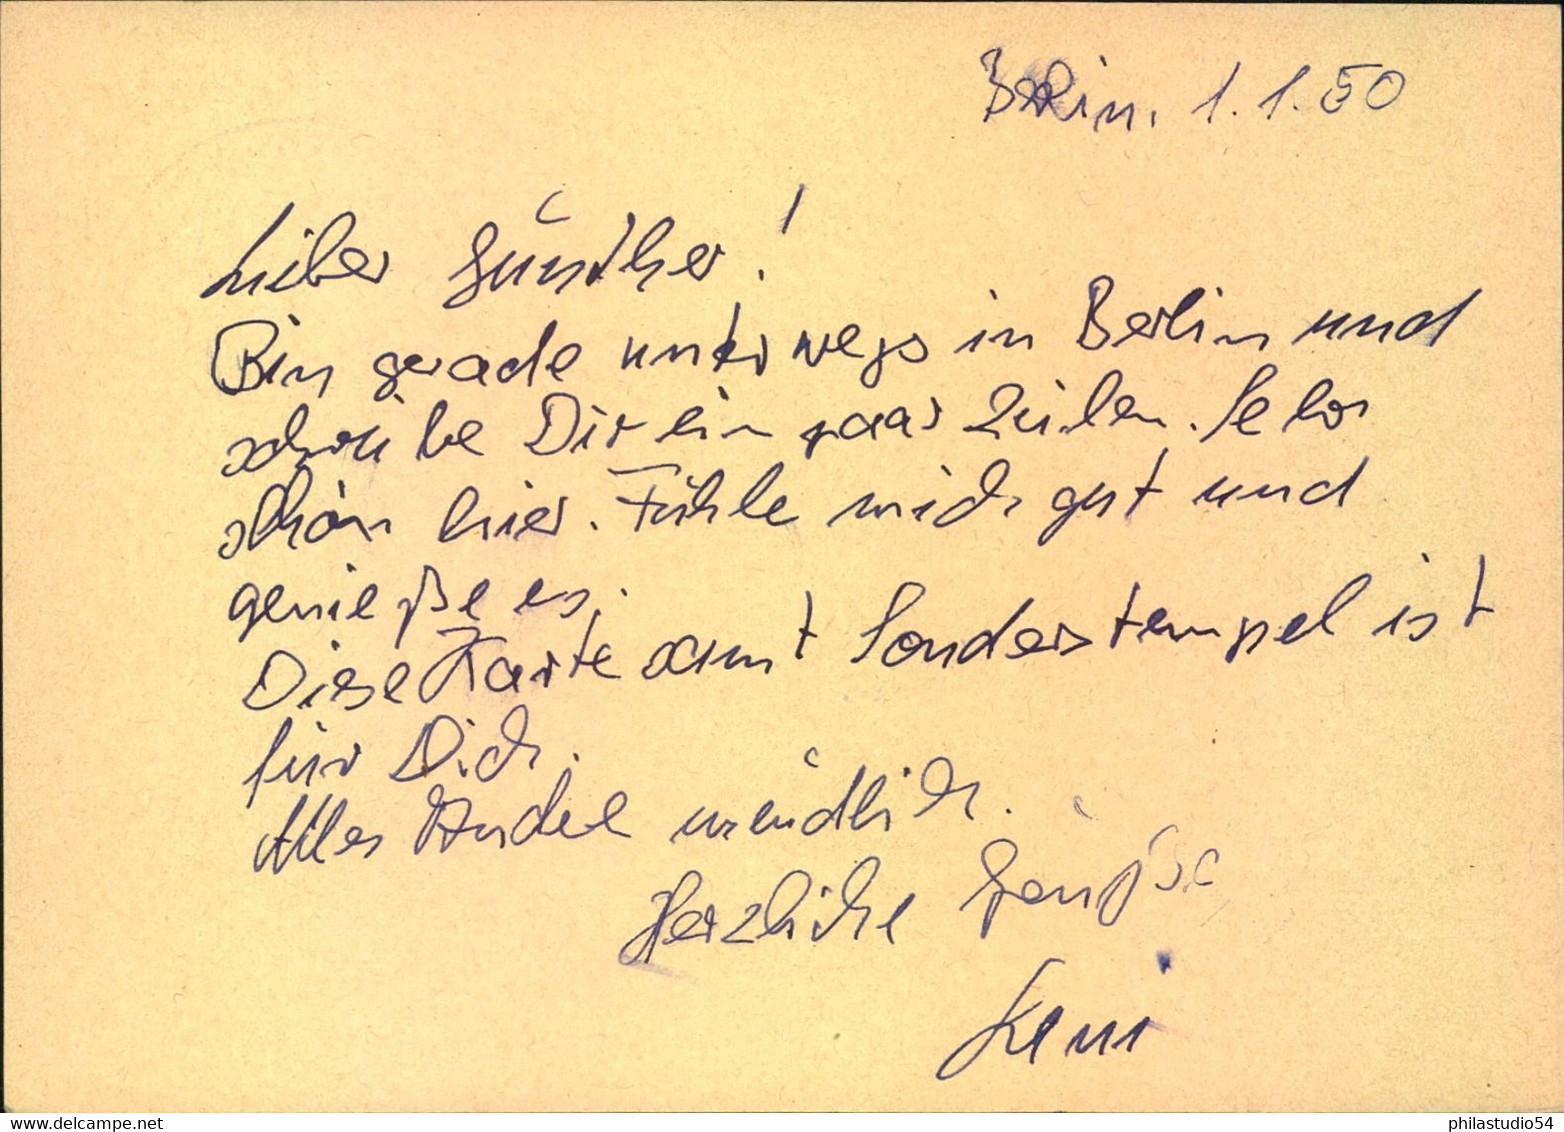 Berlin, 1.1.50
Lieber Günther!
Bin gerade unterwegs in Berlin und
schreibe Dir ein paar Zeilen. Sehr
schön hier. Fühle mich gut und
genieße es.
Diese Karte samt Sonderstempel ist
für Dich.
Alles Andere mündlich.
Herzliche Grüße
delcampe.net
philastudio54